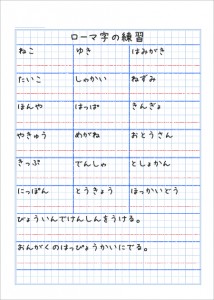 ローマ字の練習
ねこ ゆき はみがき
たいこ しゃかい ねずみ
ほんや はっぱ きんぎょ
やきゅう めがね おとうさん
きっぷ でんしゃ としょかん
にっぽん とうきょう ほっかいどう
びょういんでけんしんをうける。
おんがくのはっぴょうかいにでる。